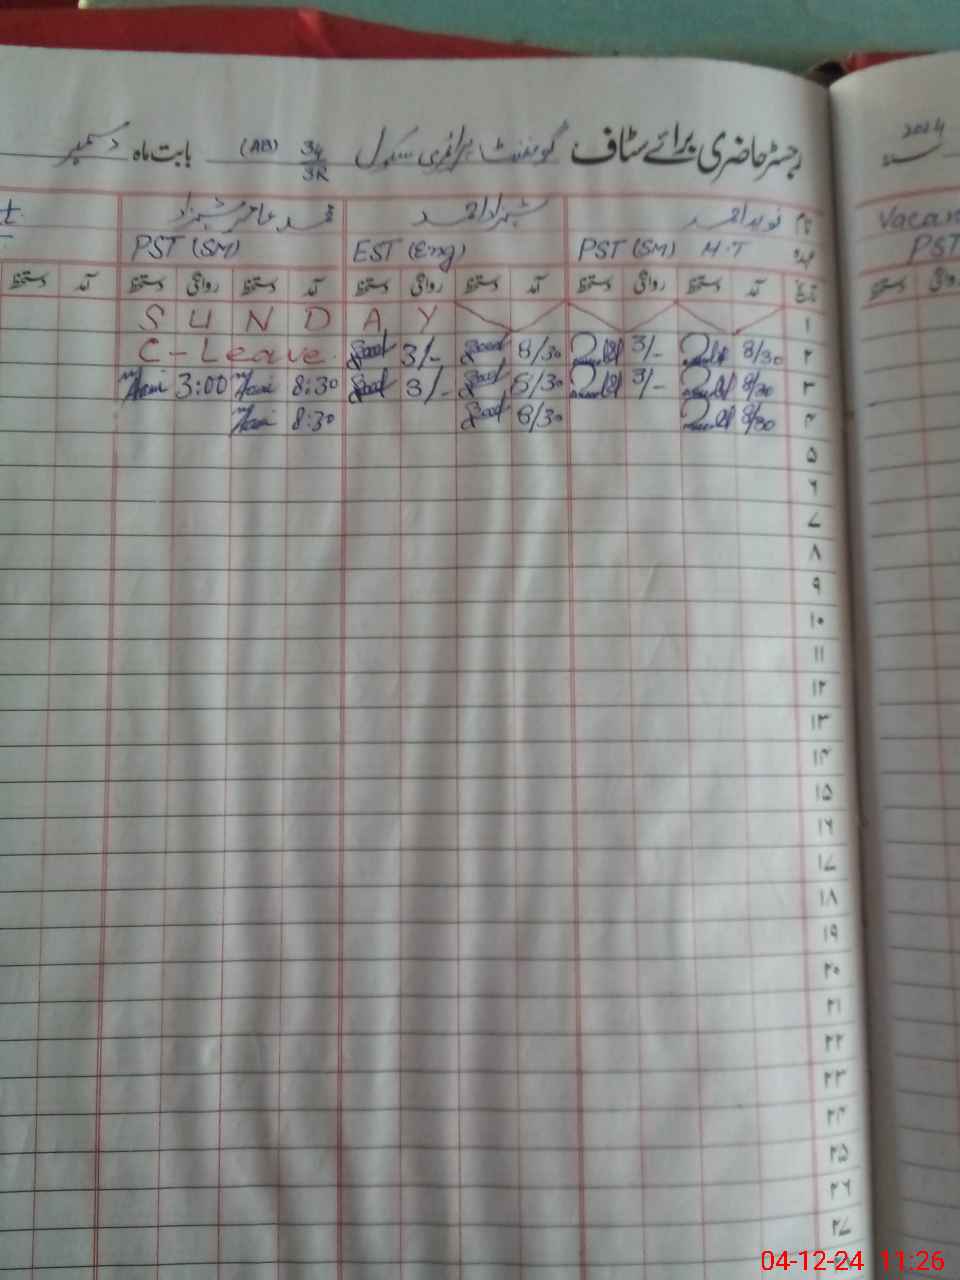 2024
رجسٹر حاضری برائے سٹاف گورنمنٹ پرائمری سکول 34/3R (AB) بابت ماہ دسمبر
نام نوید احمد شہزاد احمد محمد عامر شہزاد
عہدہ PST (SM) H.T EST (Eng) PST (SM)
Vacan
PST
تاریخ آمد دستخط روانگی دستخط آمد دستخط روانگی دستخط آمد دستخط روانگی دستخط آمد دستخط
۱ S U N D A Y
۲ 8/30 3/- 8/30 3/- C-Leave
۳ 8/30 3/- 8/30 3/- 8:30 3:00
۴ 8/30 8/30 8:30
۵
۶
۷
۸
۹
۱۰
۱۱
۱۲
۱۳
۱۴
۱۵
۱۶
۱۷
۱۸
۱۹
۲۰
۲۱
۲۲
۲۳
۲۴
۲۵
۲۶
۲۷
04-12-24 11:26